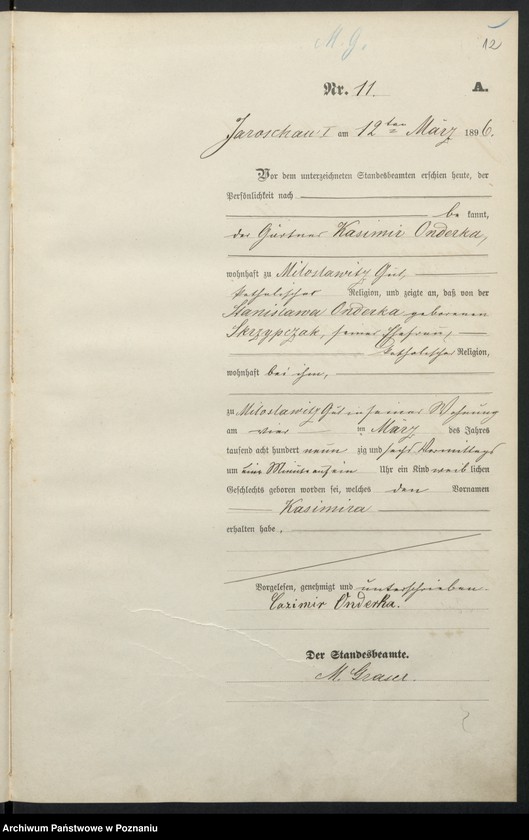 M. G.
12
Nr. 11.
A.
Jaroschau I am 12ten März 1896.
Vor dem unterzeichneten Standesbeamten erschien heute, der
Persönlichkeit nach
be kannt,
der Gärtner Kasimir Onderka,
wohnhaft zu Miloslawitz Gut,
katholischer Religion, und zeigte an, daß von der
Stanislawa Onderka geborenen
Skrzypczak, seiner Ehefrau,
katholischer Religion,
wohnhaft bei ihm,
zu Miloslawitz Gut in seiner Wohnung
am vier im März des Jahres
tausend acht hundert neun zig und sechs Vormittags
um Uhr ein Kind weib lichen
Geschlechts geboren worden sei, welches den Vornamen
Kasimira
erhalten habe.
Vorgelesen, genehmigt und unterschrieben
Cazimir Onderka.
Der Standesbeamte.
M. Graser.
Archiwum Państwowe w Poznaniu